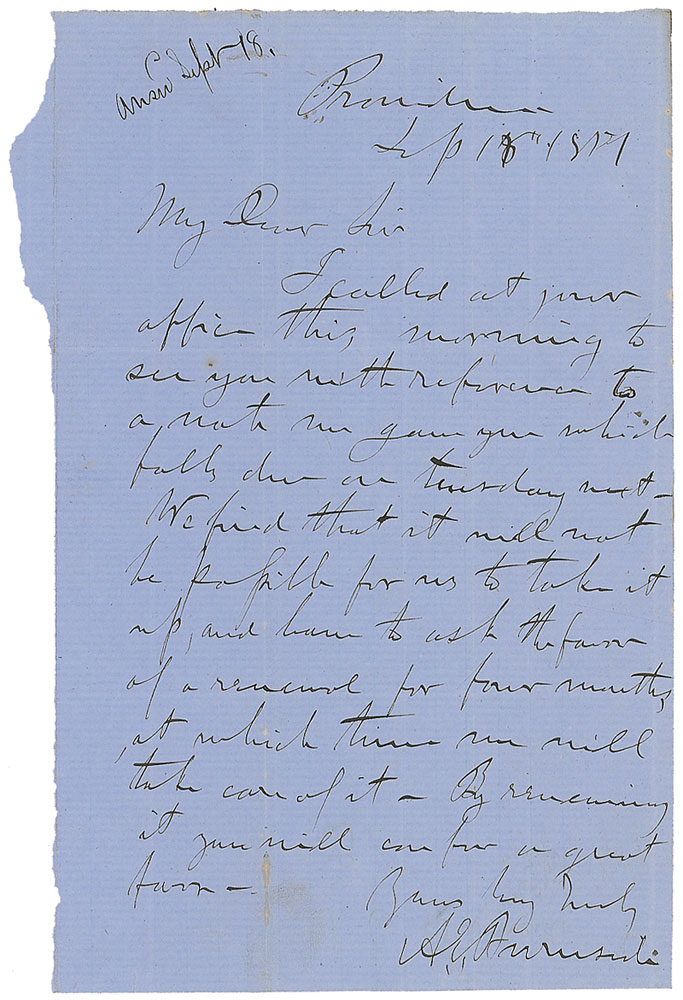 Answ Sept 18.
Providence
Sep 18" 1857
My Dear Sir
I called at your
office this morning to
see you with reference to
a note we gave you which
falls due on tuesday next -
We find that it will not
be possible for us to take it
up, and have to ask the favor
of a renewal for four months,
at which time we will
take care of it - By renewing
it you will confer a great
favor -
Yours very truly
A. E. Burnside